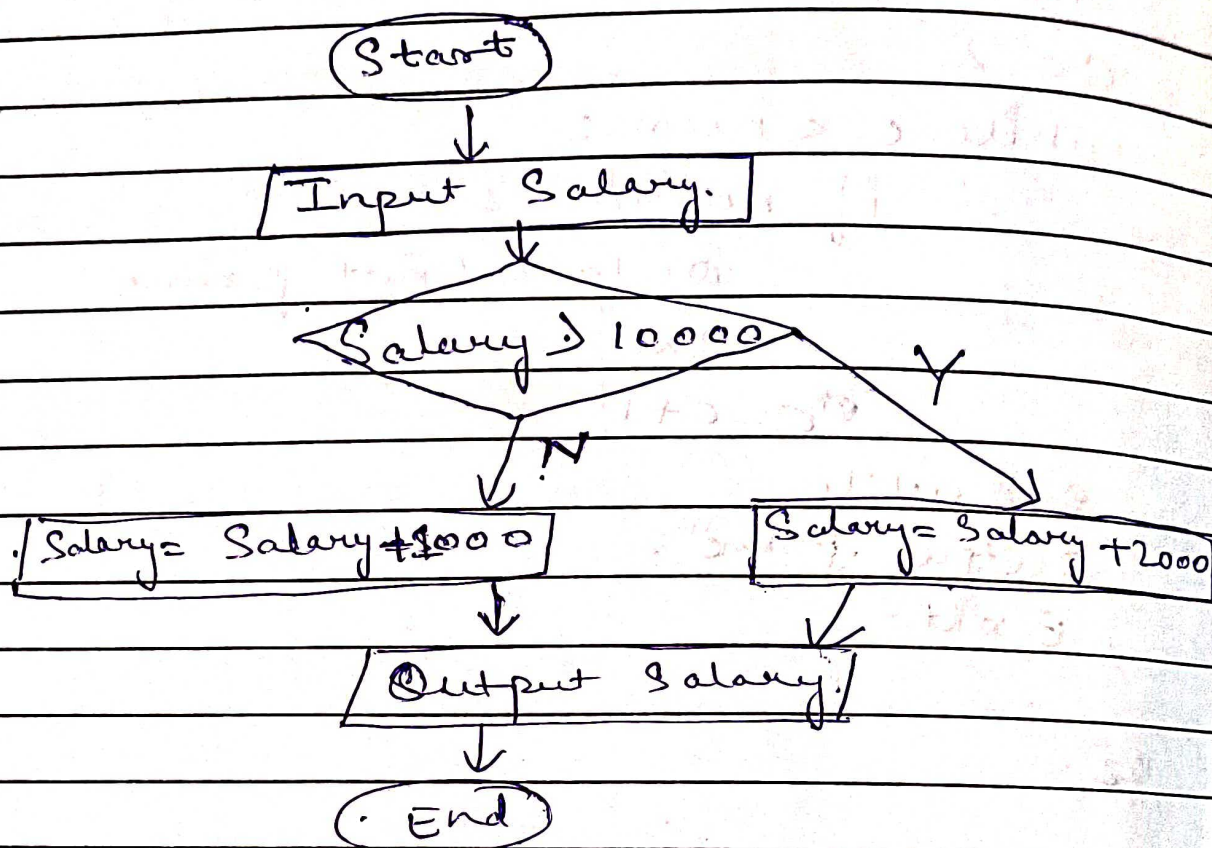 Start
Input Salary.
Salary > 10000
Y
N
Salary = Salary +1000
Salary = Salary +2000
Output Salary.
End